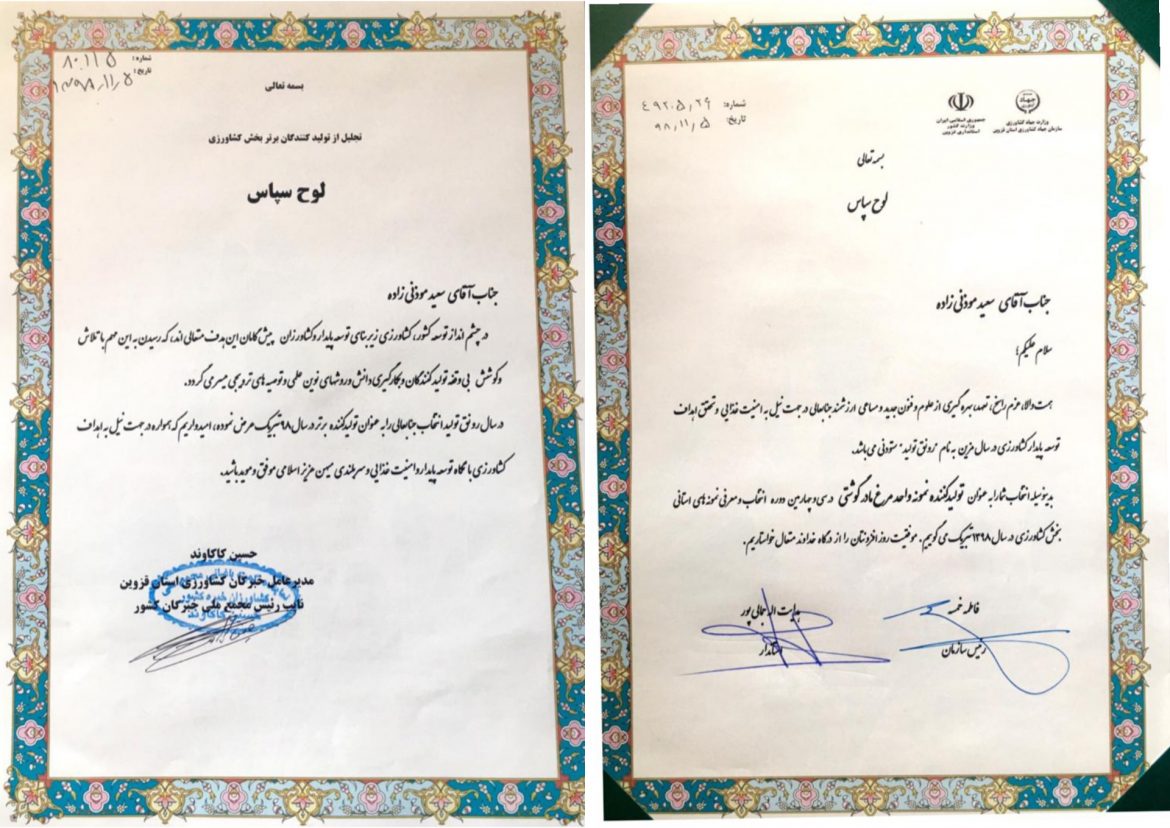 شماره: ۸۰۱۱۵
تاریخ: ۱۳۹۸,۱۱,۵
بسمه تعالی
تجلیل از تولید کنندگان برتر بخش کشاورزی
لوح سپاس
جناب آقای سعید موذنی زاده
در چشم انداز توسعه کشور، کشاورزی زیر بنای توسعه پایدار و کشاورزان پیش گامان این هدف متعالی اند، که رسیدن به این مهم با تلاش
و کوشش بی وقفه تولید کنندگان و بکارگیری دانش و روشهای نوین علمی و توصیه های ترویجی میسر می گردد.
در سال رونق تولید انتخاب جنابعالی را به عنوان تولید کننده برتر در سال ۹۸ تبریک عرض نموده، امیدواریم که همواره در جهت نیل به اهداف
کشاورزی با نگاه توسعه پایدار و امنیت غذایی و سربلندی میهن عزیز اسلامی موفق و موید باشید.
حسین کاکاوند
مدیر عامل خبرگان کشاورزی استان قزوین
نایب رئیس مجمع ملی خبرگان کشور
کشاورزان خبره کشور
حسین کاکاوند
جمهوری اسلامی ایران
وزارت کشور
استانداری قزوین
جهاد
وزارت جهاد کشاورزی
سازمان جهاد کشاورزی استان قزوین
شماره: ۴۹۲۰۵,۲۶
تاریخ: ۹۸,۱۱,۵
بسمه تعالی
لوح سپاس
جناب آقای سعید موذنی زاده
سلام علیکم؛
همت والا، عزم راسخ، تعهد، بهره گیری از علوم و فنون جدید و مساعی ارزشمند جنابعالی در جهت نیل به امنیت غذایی و تحقق اهداف
توسعه پایدار کشاورزی در سال مزین به نام رونق تولید ستودنی می باشد.
بدینوسیله انتخاب شما را به عنوان تولیدکننده نمونه واحد مرغ مادر گوشتی در سی و چهارمین دوره انتخاب و معرفی نمونه های استانی
بخش کشاورزی در سال ۱۳۹۸ تبریک می گوییم. موفقیت روز افزونتان را از درگاه خداوند متعال خواستاریم.
فاطمه خمسه
رئیس سازمان
هدایت اله جمالی پور
استاندار